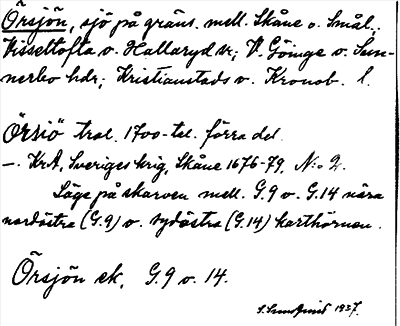 Örsjön, sjö på gräns. mell. Skåne o. Smål.,
Visseltofta o. Hallaryd sr; V. Göinge o. Sun-
nerbo hdr; Kristianstads o. Kronob. l.
"Örsiö" trol. 1700-tal. förra del.
–. KrA, Sveriges krig, Skåne 1676-79, N:o 2.
Läge på skarven mell. G.9 o. G.14 nära
nordöstra (G.9) o. sydöstra (G.14) karthörnen.
Örsjön ek. G.9 o. 14.
S. Sundquist 1937.